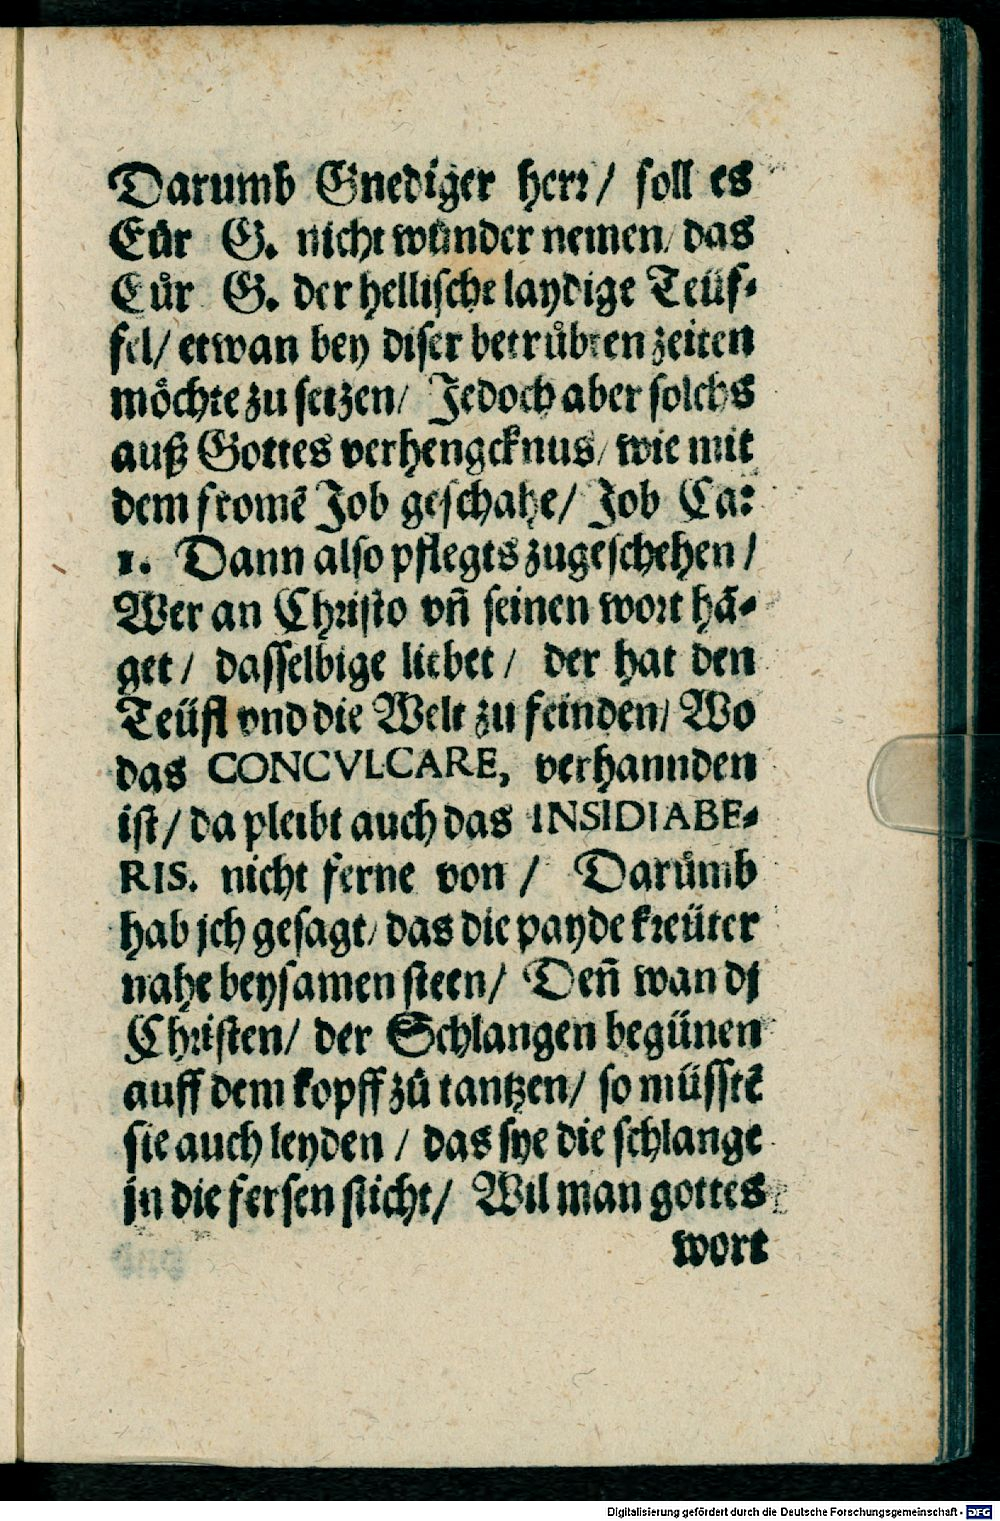 Darumb Gnediger herr/ soll es
Eůr G. nicht wůnder nemen/ das
Eůr G. der hellische laydige Teüf-
fel/ etwan bey diser betrůbten zeiten
möchte zu setzen/ Jedoch aber solchs
auß Gottes verhengcknus/ wie mit
dem fromē Job geschahe/ Job Ca:
1. Dann also pflegts zugeschehen/
Wer an Christo vñ seinen wort hā-
get/ dasselbige liebet/ der hat den
Teüfl vnd die Welt zu feinden/ Wo
das CONCVLCARE, verhannden
ist/ da pleibt auch das INSIDIABE-
RIS. nicht ferne von/ Darůmb
hab jch gesagt/ das die payde kreüter
nahe beysamen steen/ Deñ wan dj
Christen/ der Schlangen begünen
auff dem kopff zů tantzen/ so müsstē
sie auch leyden/ das sye die schlange
jn die fersen sticht/ Wil man gottes
wort
Digitalisierung gefördert durch die Deutsche Forschungsgemeinschaft - DFG